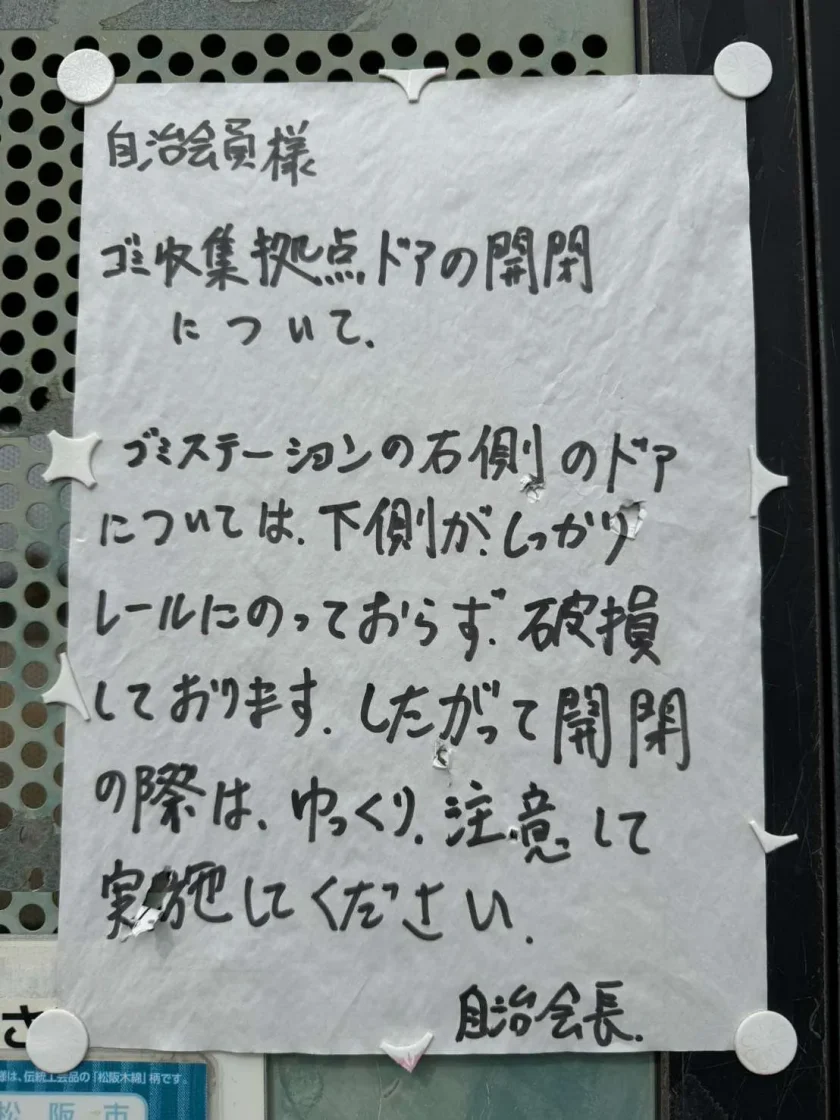 自治会員様
ゴミ収集拠点ドアの開閉
について.
ゴミステーションの右側のドア
については.下側が.しっかり
レールにのっておらず.破損
しております.したがって開閉
の際は、ゆっくり.注意して
実施してください.
自治会長.
さ
様は、伝統工芸品の「松阪木綿」柄です。
松阪市